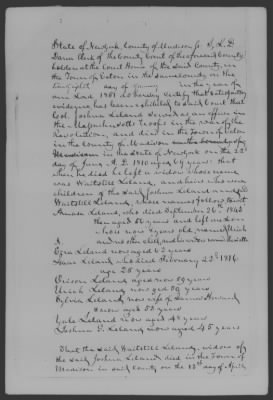 State of New York, County of Madison ss. I, L. D.
Dana Clerk of the County Court of the aforesaid County
holden at the Court House of the said County, in
the Town of Eaton in the same county on the
day of in the year of
our Lord 18 do hereby certify that satisfactory
evidence has been exhibited to said Court that
Col. Joshua Leland served as an officer in
the Massachusetts troops in the war of the
Revolution, and died in the Town of Eaton
in the County of Madison
in the State of New York on the 22d
day of June, A.D. 1810 aged 69 years: that
when he died he left a widow whose name
was Waitstill Leland, and heirs who were
children of the said Joshua Leland and said
Waitstill Leland, whose names follow to wit
Amasa Leland, who died September 26th 1843
then aged 60 years and left one son
whose now years old, named
and no other child and no widow
Ezra Leland now aged 62 years
Isaac Leland who died February 23d 1816
age 25 years
Orison Leland aged now 59 years
Uriah Leland now aged 59 years
Sylvia Leland now wife of Howard
now 53 years
Yale Leland now aged 48 years
Joshua Leland now aged 45 years
That the said Waitstill Leland, widow of
the said Joshua Leland died in the Town of
Madison in said County on the 13th day of April